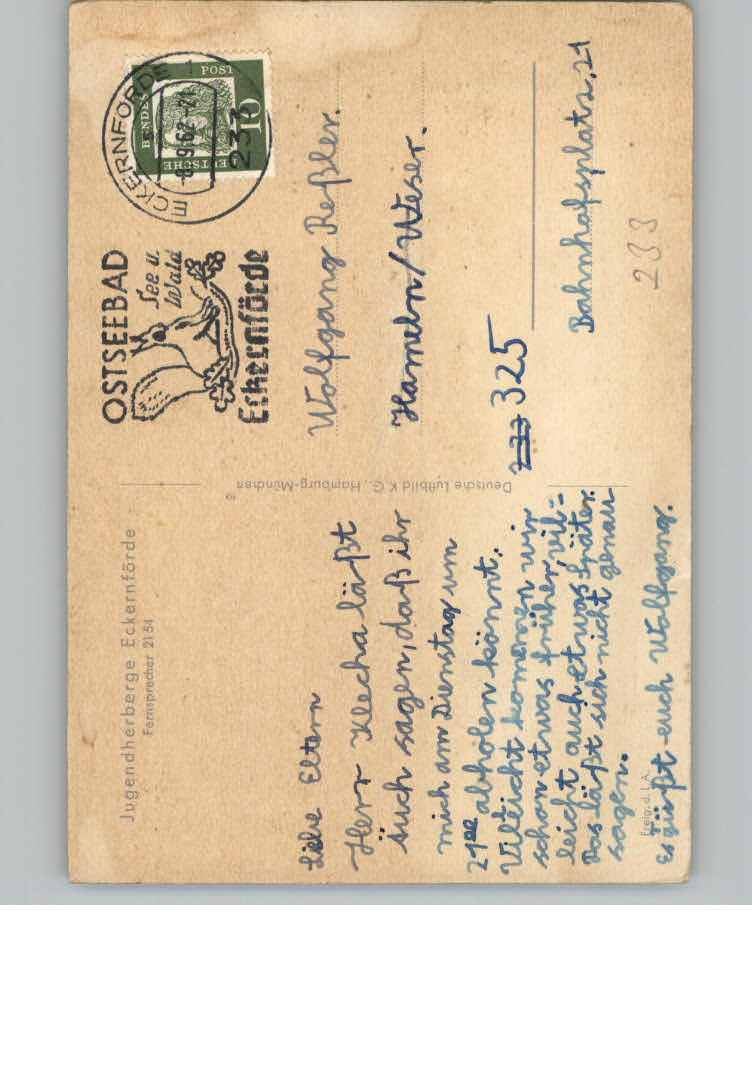 Jugendherberge Eckernförde
Fernsprecher 2154
Liebe Eltern
Herr Klecha läßt
Euch sagen, daß ihr
mich am Dienstag um
21⁰⁰ abholen könnt.
Villeicht kommen wir
schon etwas früher, vil-
leicht auch etwas später.
Das läßt sich nicht genau
sagen.
Es grüßt euch Wolfgang.
Freig. d. L.A.
Deutsche Luftbild K.G., Hamburg-München
OSTSEEBAD
See u.
Wald
Eckernförde
ECKERNFÖRDE 1
-8.9.62-21
233
DEUTSCHE BUNDESPOST
10
Wolfgang Reßler.
Hameln/Weser.
233 325
Bahnhofsplatz, 21
233